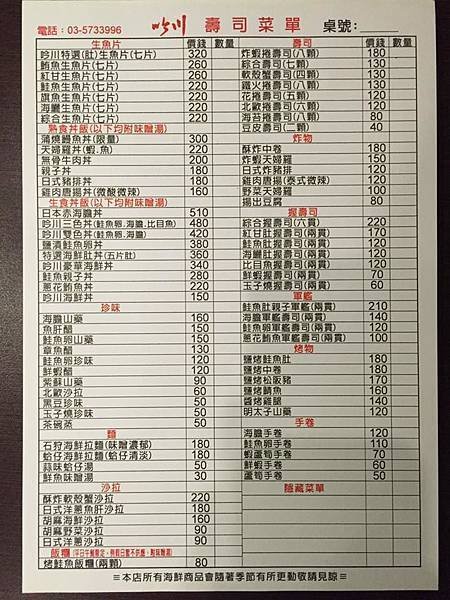 電話：03-5733996 吟川 壽司菜單 桌號：
生魚片 價錢 數量
吟川特選(肚)生魚片(七片) 320
鮪魚生魚片(七片) 260
紅甘生魚片(七片) 260
鮭魚生魚片(七片) 220
旗魚生魚片(七片) 220
海鱺生魚片(七片) 220
綜合生魚片(七片) 220
熟食丼飯(以下均附味噌湯)
蒲燒鰻魚丼(限量) 300
天婦羅丼(蝦.魚) 220
無骨牛肉丼 200
親子丼 180
日式豬排丼 180
雞肉唐揚丼(微酸微辣) 160
生食丼飯(以下均附味噌湯)
日本赤海膽丼 510
吟川三色丼(鮭魚卵.海膽.比目魚) 480
吟川雙色丼(鮭魚卵.海膽) 420
鹽漬鮭魚卵丼 380
特選海鮮肚丼(五片肚) 360
吟川豪華海鮮丼 340
鮭魚親子丼 280
蔥花鮪魚丼 220
吟川海鮮丼 150
珍味
海膽山藥 160
魚肝醋 150
鮭魚卵山藥 150
章魚醋 130
鮭魚卵珍味 120
鮮蝦醋 120
紫蘇山藥 90
北歐沙拉 60
黑豆珍味 50
玉子燒珍味 50
茶碗蒸 50
麵
石狩海鮮拉麵(味噌濃郁) 180
蛤仔海鮮拉麵(蛤仔清淡) 180
蒜味蛤仔湯 50
鮮魚味噌湯 30
沙拉
酥炸軟殼蟹沙拉 220
日式洋蔥魚肝沙拉 180
胡麻海鮮沙拉 160
胡麻野菜沙拉 90
日式洋蔥沙拉 90
飯糰
烤鮭魚飯糰(兩顆) 80
壽司 價錢 數量
炸蝦捲壽司(八顆) 180
綜合壽司(七顆) 130
軟殼蟹壽司(四顆) 130
鐵火捲壽司(八顆) 130
花捲壽司(五顆) 120
北歐捲壽司(八顆) 120
海苔捲壽司(八顆) 80
豆皮壽司(二顆) 40
炸物
酥炸中卷 180
炸蝦天婦羅 150
日式炸豬排 120
雞肉唐揚(泰式微辣) 120
野菜天婦羅 100
揚出豆腐 80
握壽司
綜合握壽司(六貫) 220
紅甘肚握壽司(兩貫) 170
鮭魚肚握壽司(兩貫) 120
海鱺肚握壽司(兩貫) 120
比目魚握壽司(兩貫) 120
鮮蝦握壽司(兩貫) 70
玉子燒握壽司(兩貫) 60
軍艦
鮭魚肚親子軍艦(兩貫) 210
海膽軍艦壽司(兩貫) 140
鮭魚卵軍艦壽司(兩貫) 120
蔥花鮪魚軍艦壽司(兩貫) 100
烤物
鹽烤鮭魚肚 180
鹽烤中卷 180
鹽烤松阪豬 170
鹽烤鯖魚 160
醬烤雞腿 140
明太子山藥 120
手卷
海膽手卷 120
鮭魚卵手卷 110
蝦蘆筍手卷 70
鮮蝦手卷 60
蘆筍手卷 50
隱藏菜單
≡本店所有海鮮商品會隨著季節有所更動敬請見諒≡